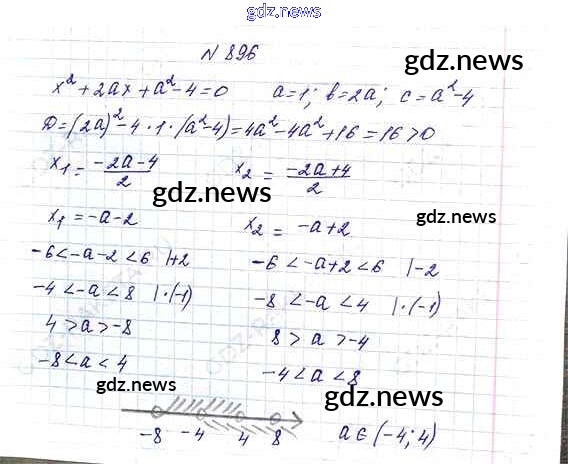 gdz.news
N 896
gdz.news
x² + 2ax + a² - 4 = 0 a = 1; b = 2a; c = a² - 4
D = (2a)² - 4 · 1 · (a² - 4) = 4a² - 4a² + 16 = 16 > 0
x₁ = (-2a - 4)/2 x₂ = (-2a + 4)/2
gdz.news
gdz.news
x₁ = -a - 2 x₂ = -a + 2
-6 < -a - 2 < 6 |+2 -6 < -a + 2 < 6 |-2
-4 < -a < 8 |·(-1) -8 < -a < 4 |·(-1)
4 > a > -8 8 > a > -4
-8 < a < 4 -4 < a < 8
gdz.news
gdz.news
-8 -4 4 8 a ∈ (-4; 4)